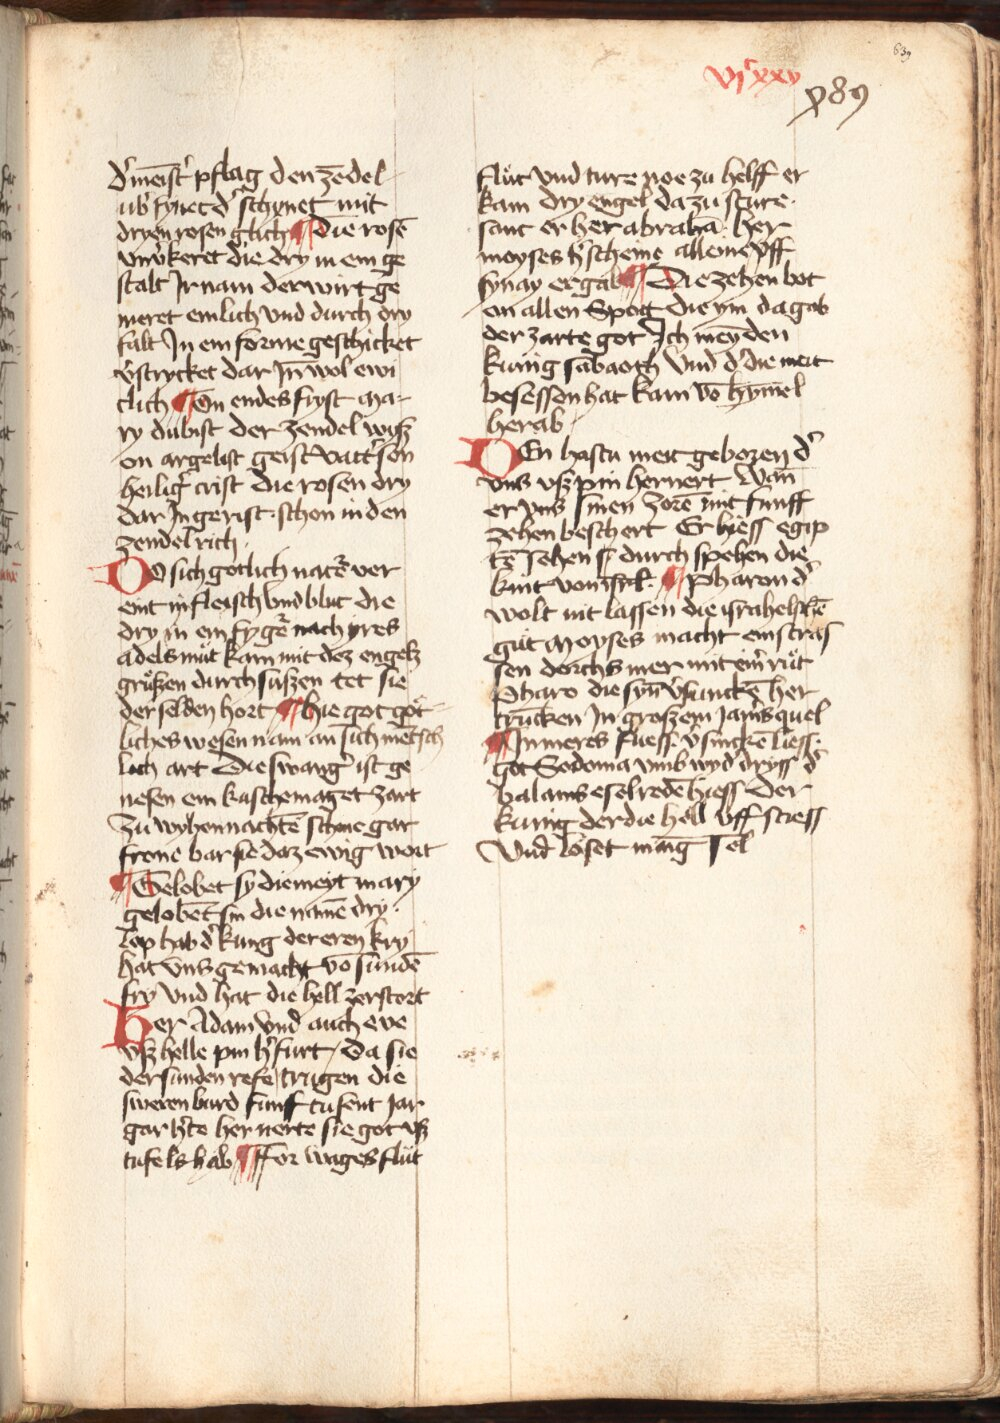 639
vjᶜxxv
789
d'meist' pflag den zēdel
ub' synet d' schynet mit
dryen rosen glich ¶ Die rosē
unv'keret die dry in ein ge
stalt Ir nam der wirt ge
meret einlich und durch dry
falt In ein forme geschicket
v'strycket dar Inn wol ewi
clich ¶ On endes fryst Ma-
ry du bist der zendel wysz
on argelist geist vatt' son
heilig' crist die rosen dry
dar In gerist · schon in den
zendel rich ·
Do sich gotlich nat'e ver
eint in fleisch vnd blut die
dry in ein fyge' nach yres
adels mut kam mit dez engelz
gruszen durch suszen tet sie
der selden hort ¶ Hie got got-
liches wesen nam an sich mentsch
lich art Die swang' ist ge
nesen ein kusche maget zart
Zu wyhennachtē schone gar
frone bar sie daz ewig wort
¶ Gelobet sy die meyt mary
gelobet sin die namē dry ·
lop hab d' kung der eren kry
hat vns gemacht vō sundē
fry vnd hat die hell zerstort
Her Adam vnd auch eve
vsz helle pin h' furt / Da sie
der sunden refe trugen die
sweren burd funff tusent Jar
gar h'te her nerte sie got vsz
tufels hab ¶ For wages flut
flut vnd ture noe zu helff er
kam dry engel da zu sture ·
sant er her abrahā · Her
moyses h' scheine alleine vff
synay ergab ¶ Die zehen bot
on allen Spott die ym da gab
der zarte got Ich mey den
kunig sabaoth vnd d' die meit
besessen hat kam vō hymel
herab ·
Den hastu meit geboren d'
vns vsz pin hernert Wan
er vns sinen zorē mit funff
zehen beschert Er hiess egip
tē sehen durch spehen die
kint von isrl · ¶ Pharon d'
wolt nit lassen die israhelschē
gut Moyses macht ein stras
sen dorchs mer mit eim' rut
Pharo die syn v'sunckē her
truncken In groszem Jam's quel
¶ In meres fuess v'sincken liess ·
got Sodoma vmb wyd' dryss d'
balams esel redē hiess Der
kunig der die hell vff stiess
Vnd loset mang Sel